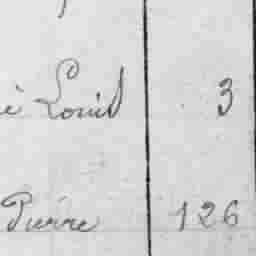 è Louis 3
Pierre 126